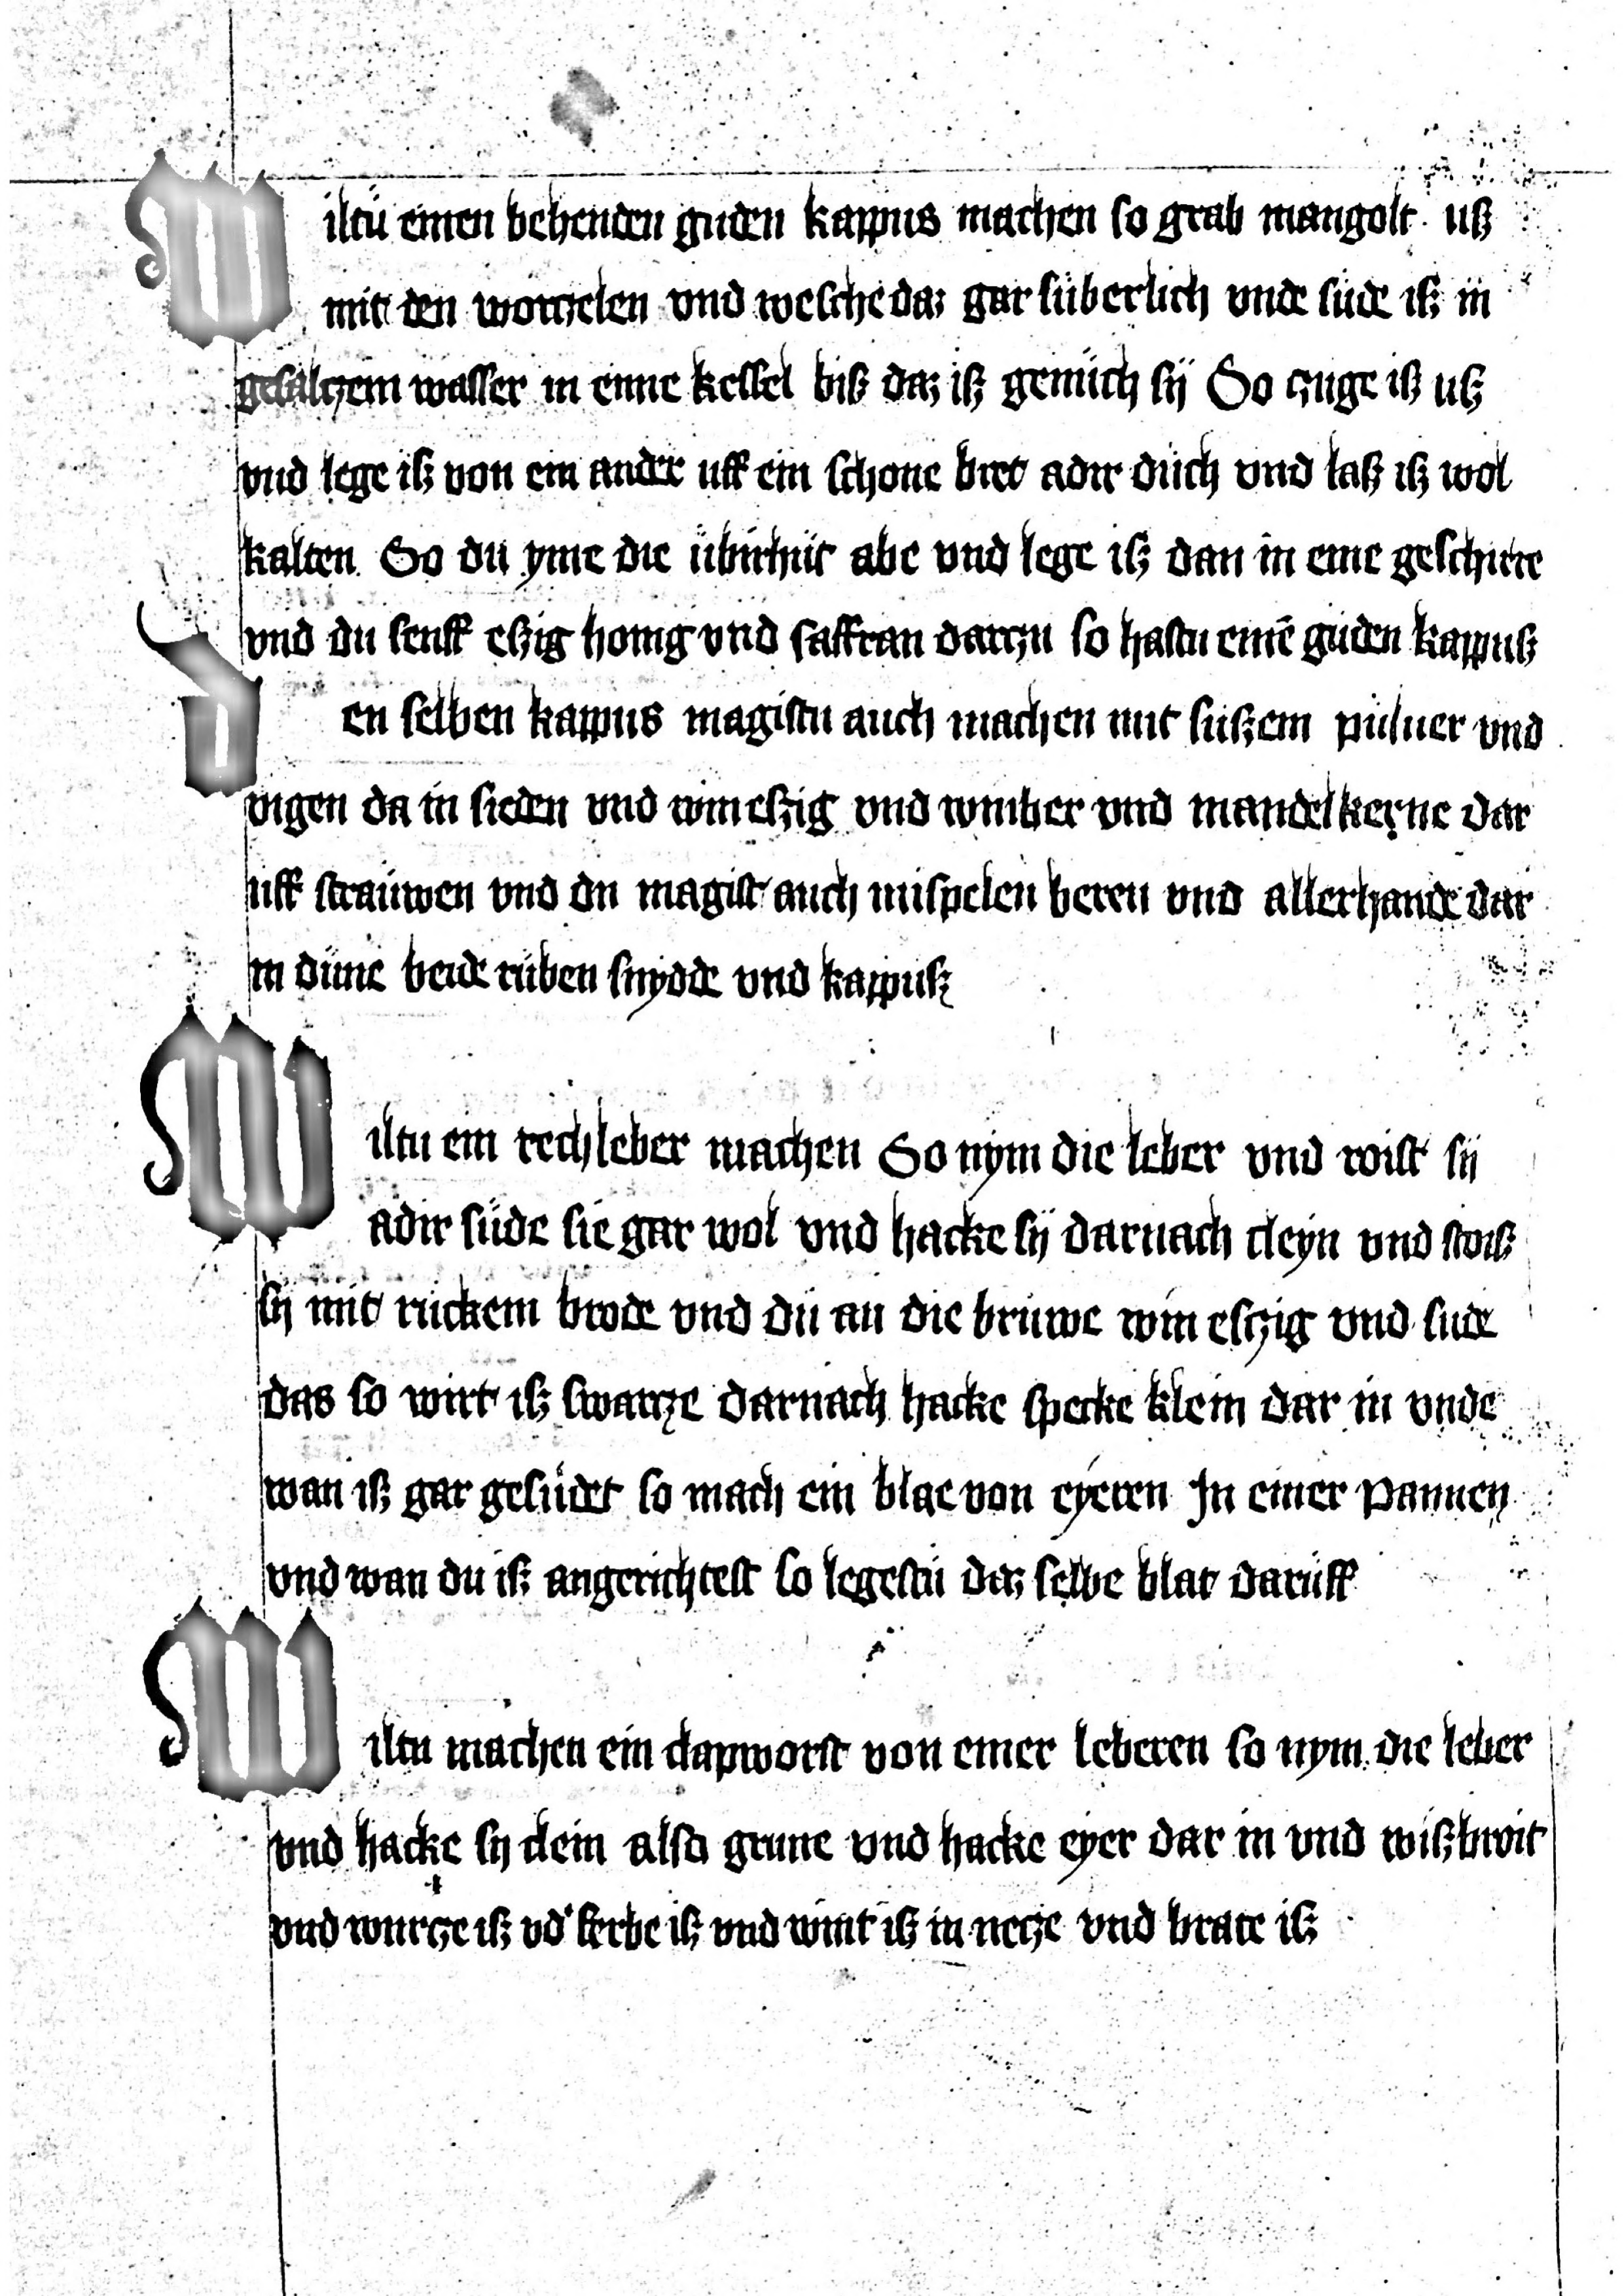 Wiltu einen behenden guden kappus machen so grab mangolt uß
mit den wortzelen vnd wesche daz gar süberlich vnde süde iß in
gesaltzem wasser in enne kessel biß daz iß gemüch sÿ So zuge iß uß
vnd lege iß von ein ander uff ein schone bret adir düch vnd laß iß wol
kalten So du yme die übirhüt abe vnd lege iß dan in eine geschirre
vnd du senff eßig honig vnd saffran dartzu so hastu einē guden kappuß
den selben kappus magistu auch machen mit sußem puluer vnd
vigen da in sieden vnd win eßig vnd winber vnd mandelkerne dar
uff straüwen vnd du magist auch mispelen beren vnd allerhande dar
in düne beide rüben snydde vnd kappuß
Wiltu ein rechleber machen So nym die leber vnd roist sÿ
adir süde sie gar wol vnd hacke sÿ darnach cleyn vnd stoiß
sÿ mit ruckem brode vnd dü an die brüwe win eschzig vnd sude
das so wirt iß swartze darnach hacke specke klein dar in vnde
wan iß gar gesüdet so mach ein blae von eyeren In einer pannen
vnd wan du iß angerichtest so legestü daz selbe blat darüff
Wiltu machen ein clapworst von einer leberen so nym die leber
vnd hacke sÿ clein also grune vnd hacke eyer dar in vnd wißbroit
vnd wurtze iß vd' ferbe iß vnd wint iß in netze vnd brate iß